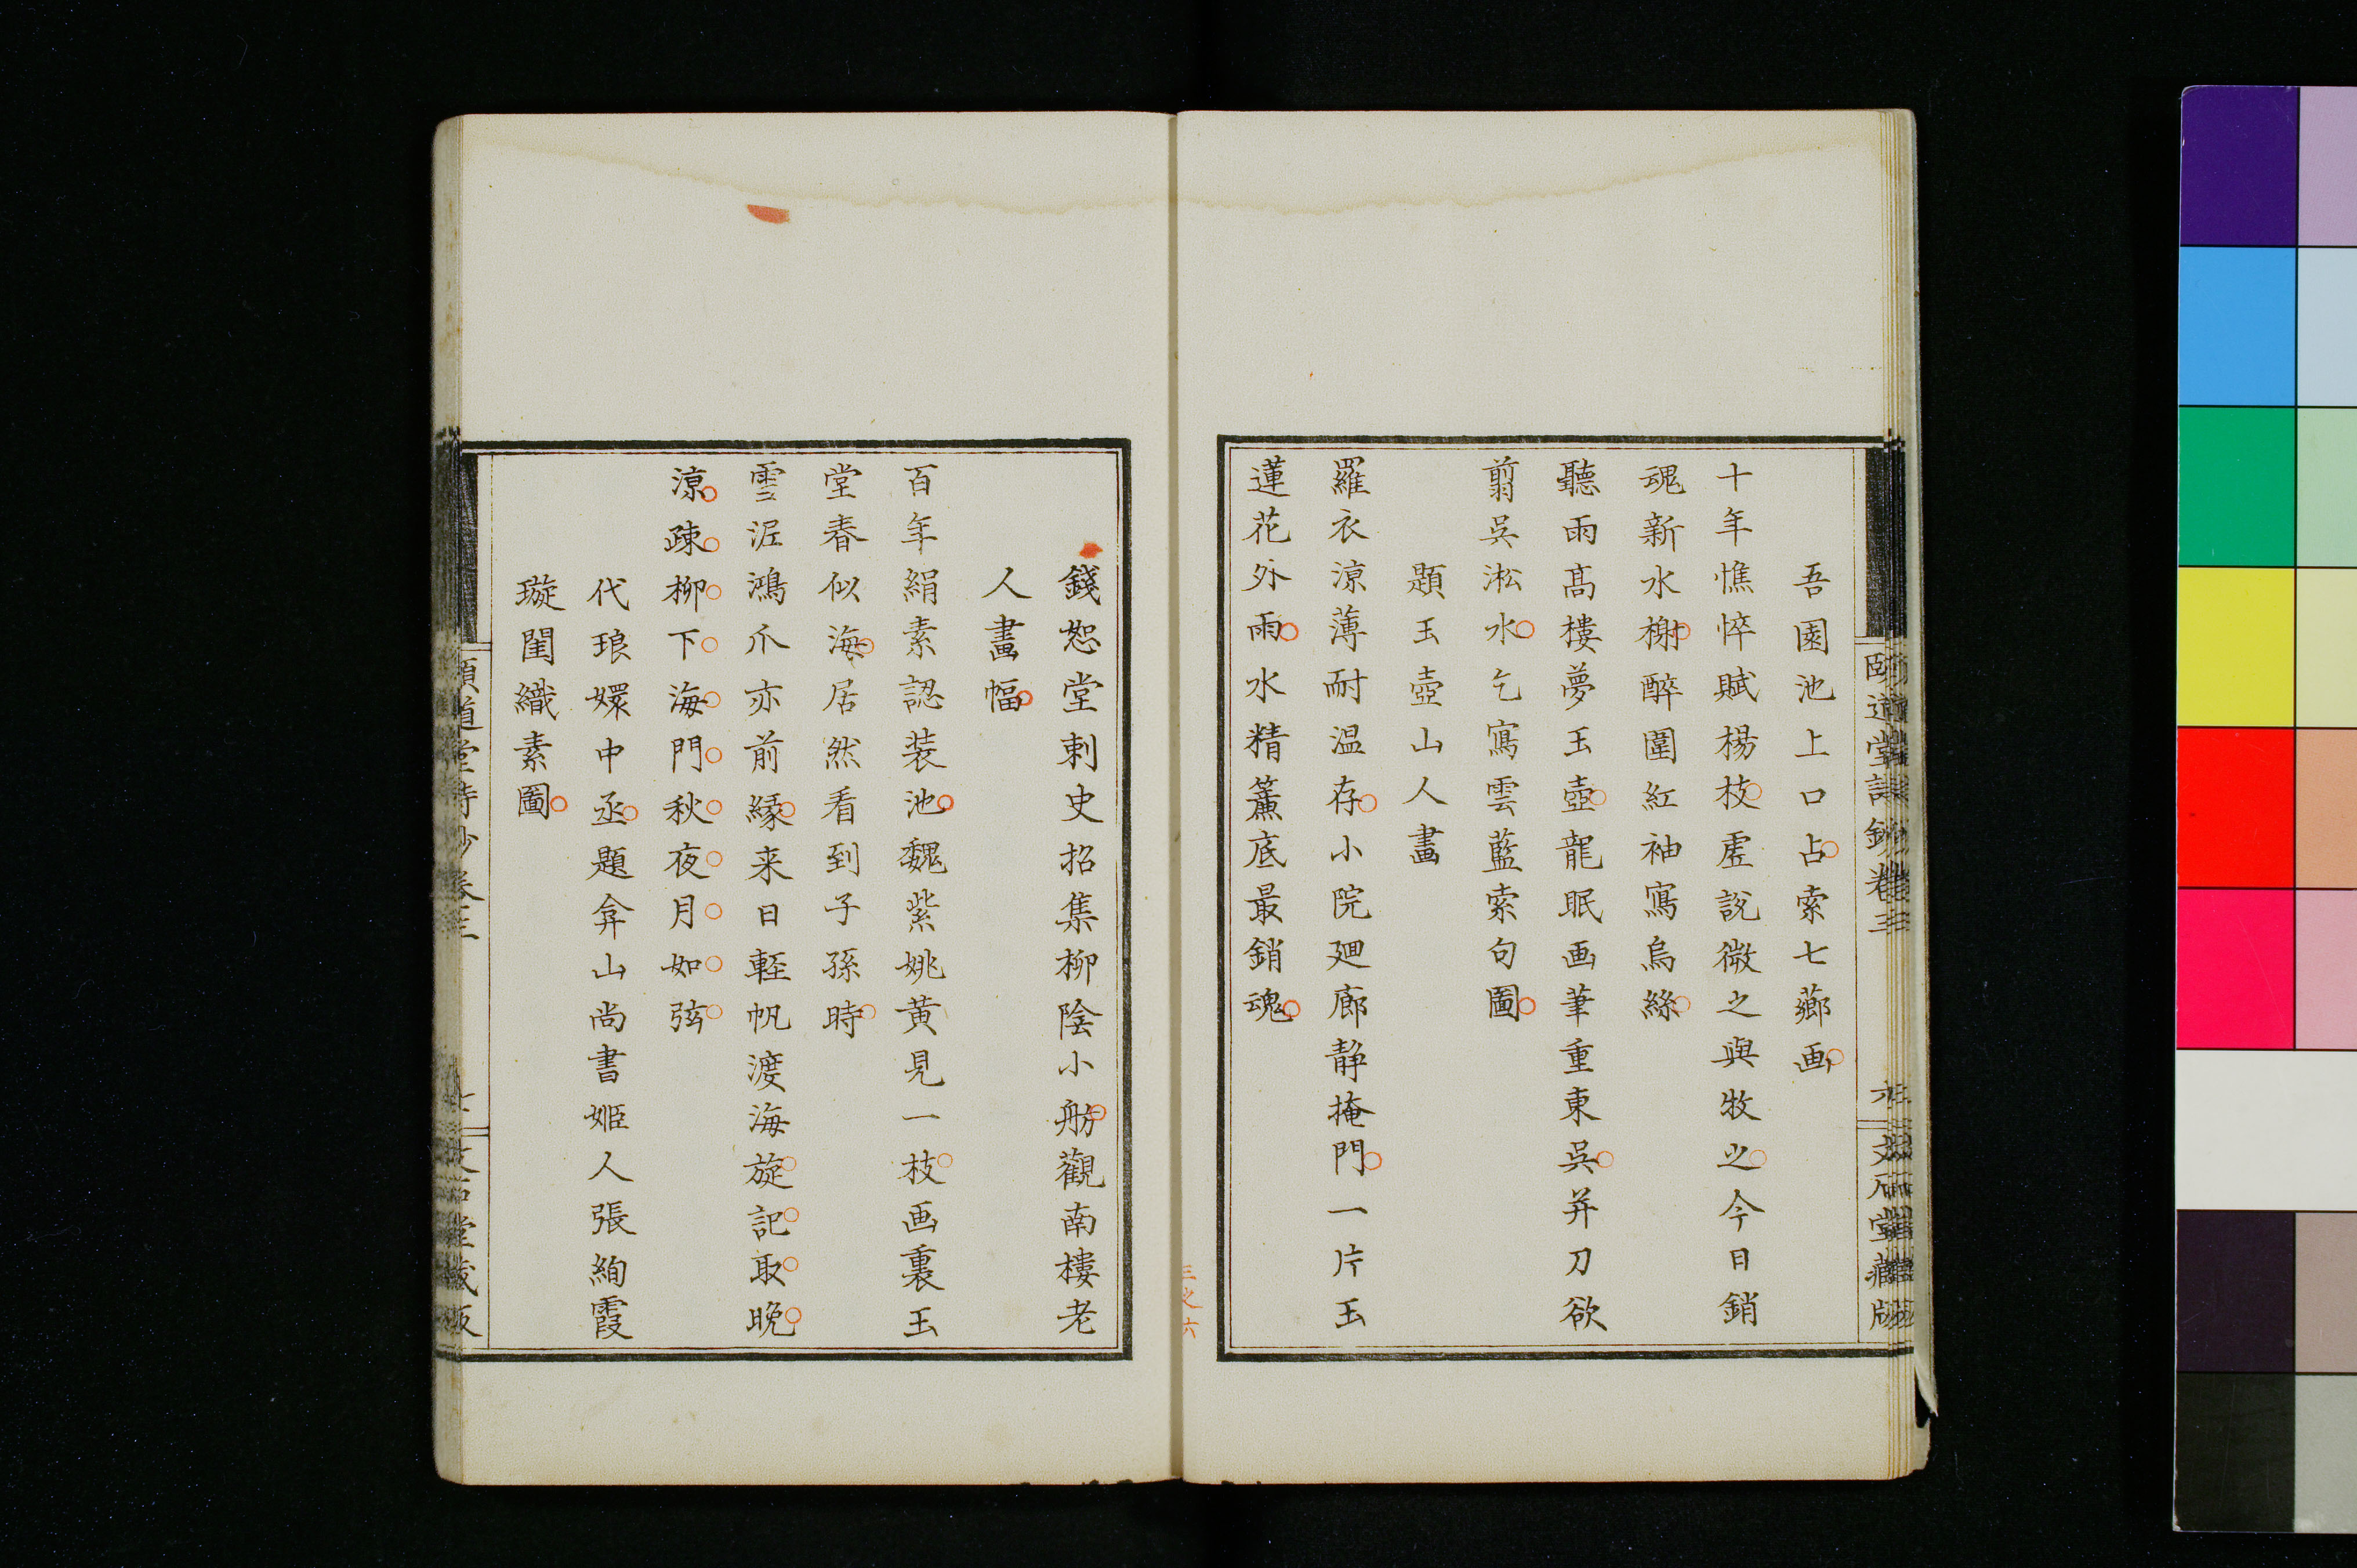 吾園池上口占索七薌画
十年憔悴賦楊枝虗說微之與牧之今日銷
魂新水榭醉圍紅袖寫烏絲
聽雨髙樓夢玉壺龍眠画筆重東吳并刀欲
翦吳淞水乞寫雲藍索句圖
題玉壺山人畫
羅衣涼薄耐温存小院廻廊静掩門一片玉
蓮花外雨水精簾底最銷魂
三之六
錢恕堂刺史招集柳陰小舫觀南樓老
人畫幅
百年絹素認装池魏紫姚黃見一枝画裏玉
堂春似海居然看到子孫時
雪泥鴻爪亦前緣来日輕帆渡海旋記取晚
涼疎柳下海門秋夜月如弦
代琅嬛中丞題弇山尚書姬人張絢霞
璇閨織素圖
頤道堂詩鈔卷三